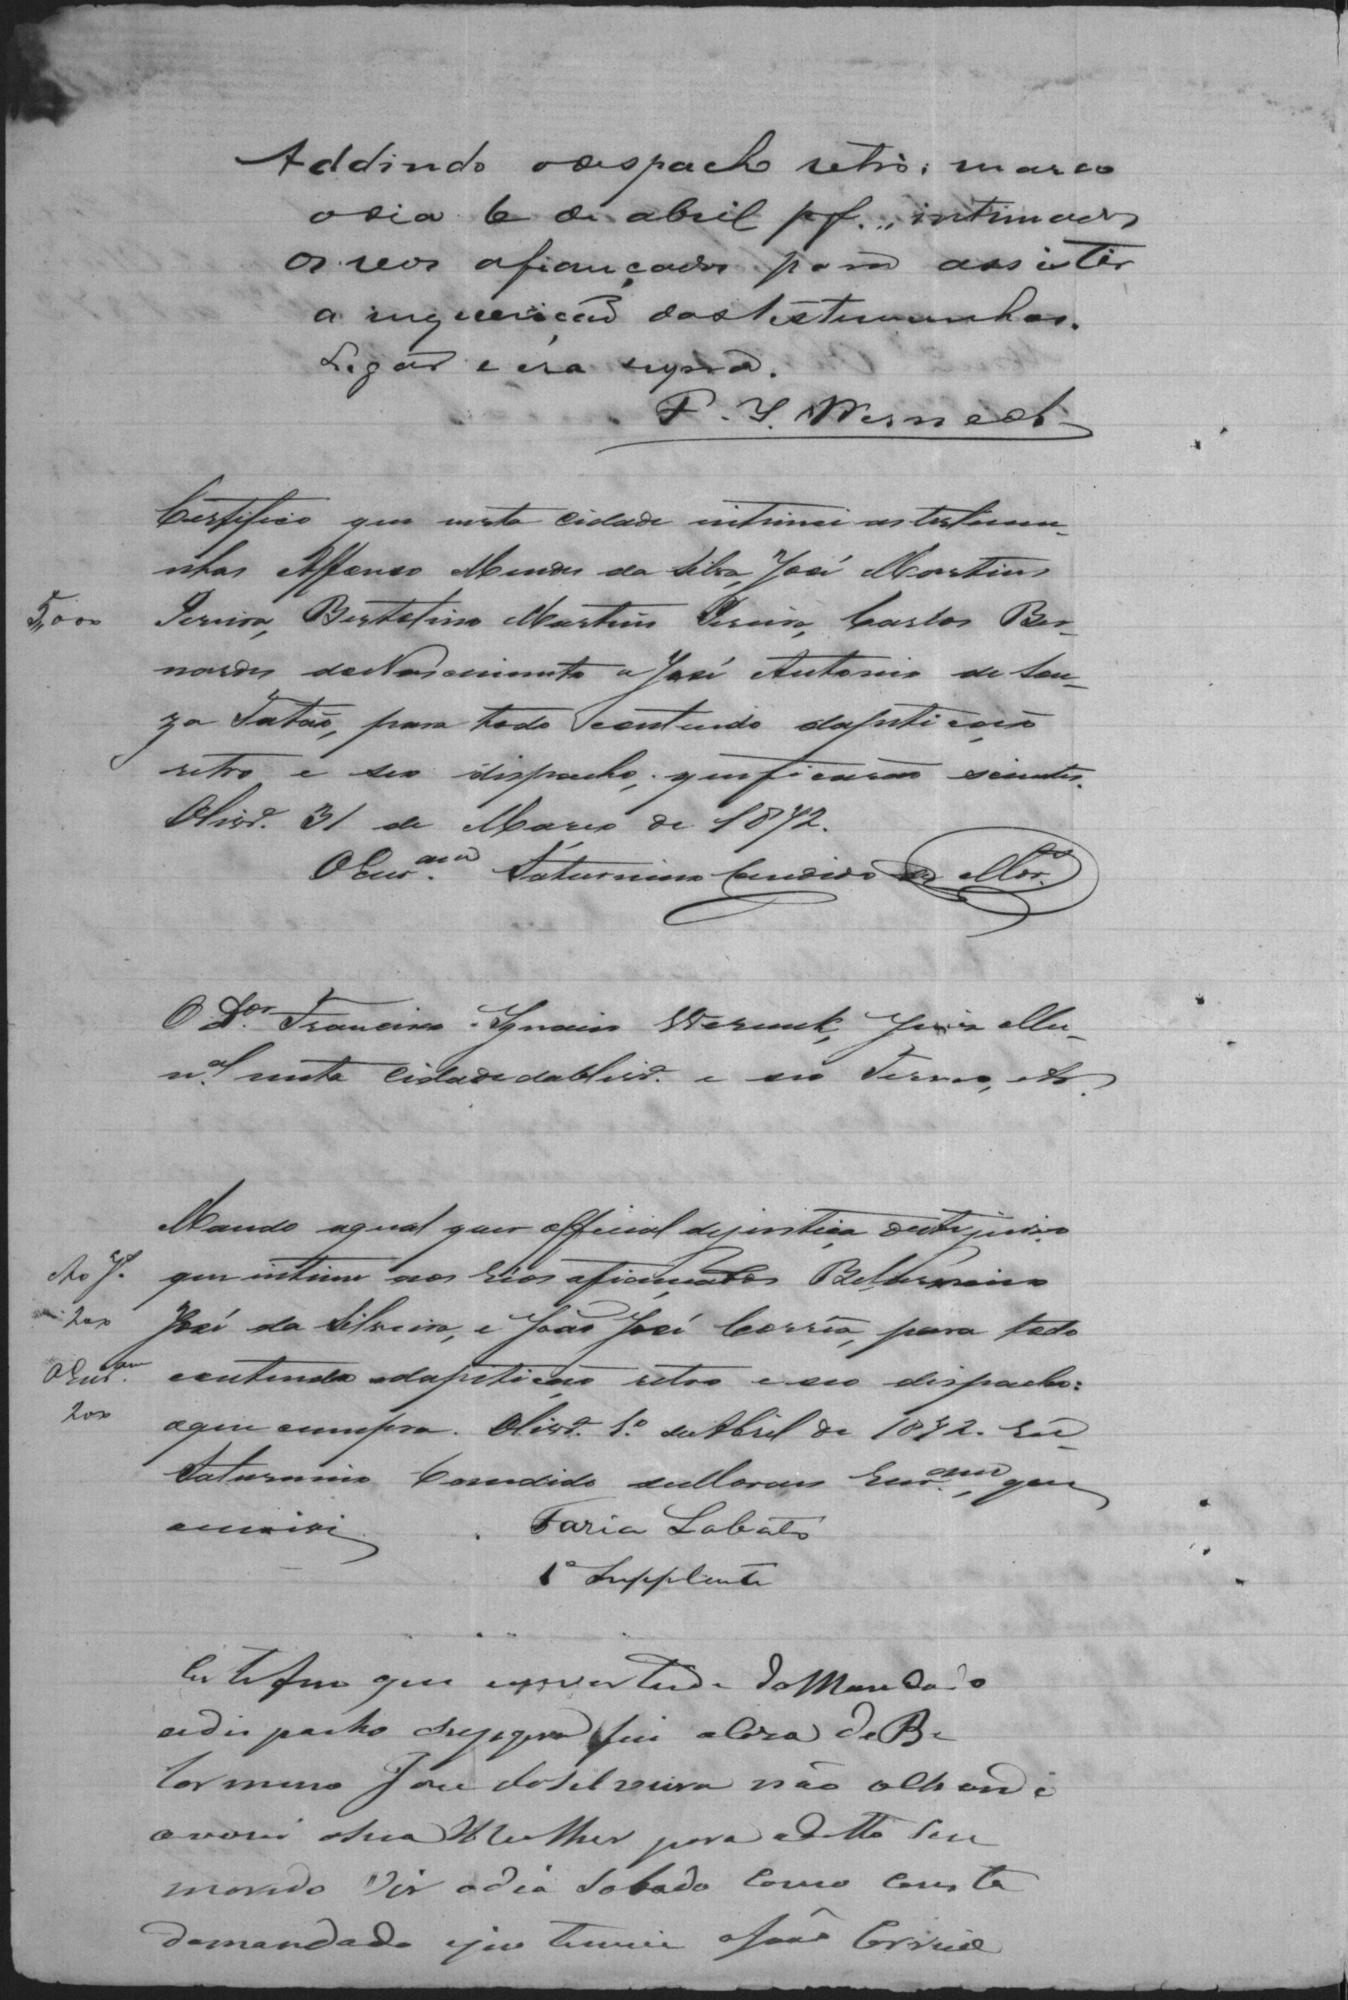 Addindo o despacho retro: marco
o dia 6 de abril pf.,, intimados
os reos afiançados para assistir
a inquerição das testemunhas.
Logar e era supra.
F. I. Werneck
Certifico que nesta cidade intimei as testemu-
nhas Affonso Mendes da Silva, José Martins
5,,000
Pereira, Bertolino Martins Pereira, Carlos Ber-
nardes do Nascimento e José Antonio de Sou-
za Tatão, para todo conteudo dapetição
retro e seo dispacho, que ficarão scientes.
Olivrª. 31 de Março de 1872.
O Escr.am Saturnino Candido de Mor.s
O Dor. Francisco Ignacio Werneck, Juiz Mu-
n.al nesta cidade da Olivrª. e seo Termo, etc.
Mando aqual quer official dejustiça deste juizo
Ao J.
que intime aos Reos afiançados Belarmino
200
José da Silveira, e João José Corrêa, para todo
O Escr.am
conteudo dapetição retro e seo dispacho:
200
oque cumpra. Olivrª. 1º de Abril de 1872. Eu
Saturnino Candido deMoraes Escr.am, que
escrivi
Faria Lobato
1º Supplente
Certifico que emvertude do Mandado
edispacho supra fui acaza de Be
larmino José daSilveira não olhando
avizei asua Mulher para aditto seu
marido vir odia Sabado como consta
domandado eintimei aJoão Corriea